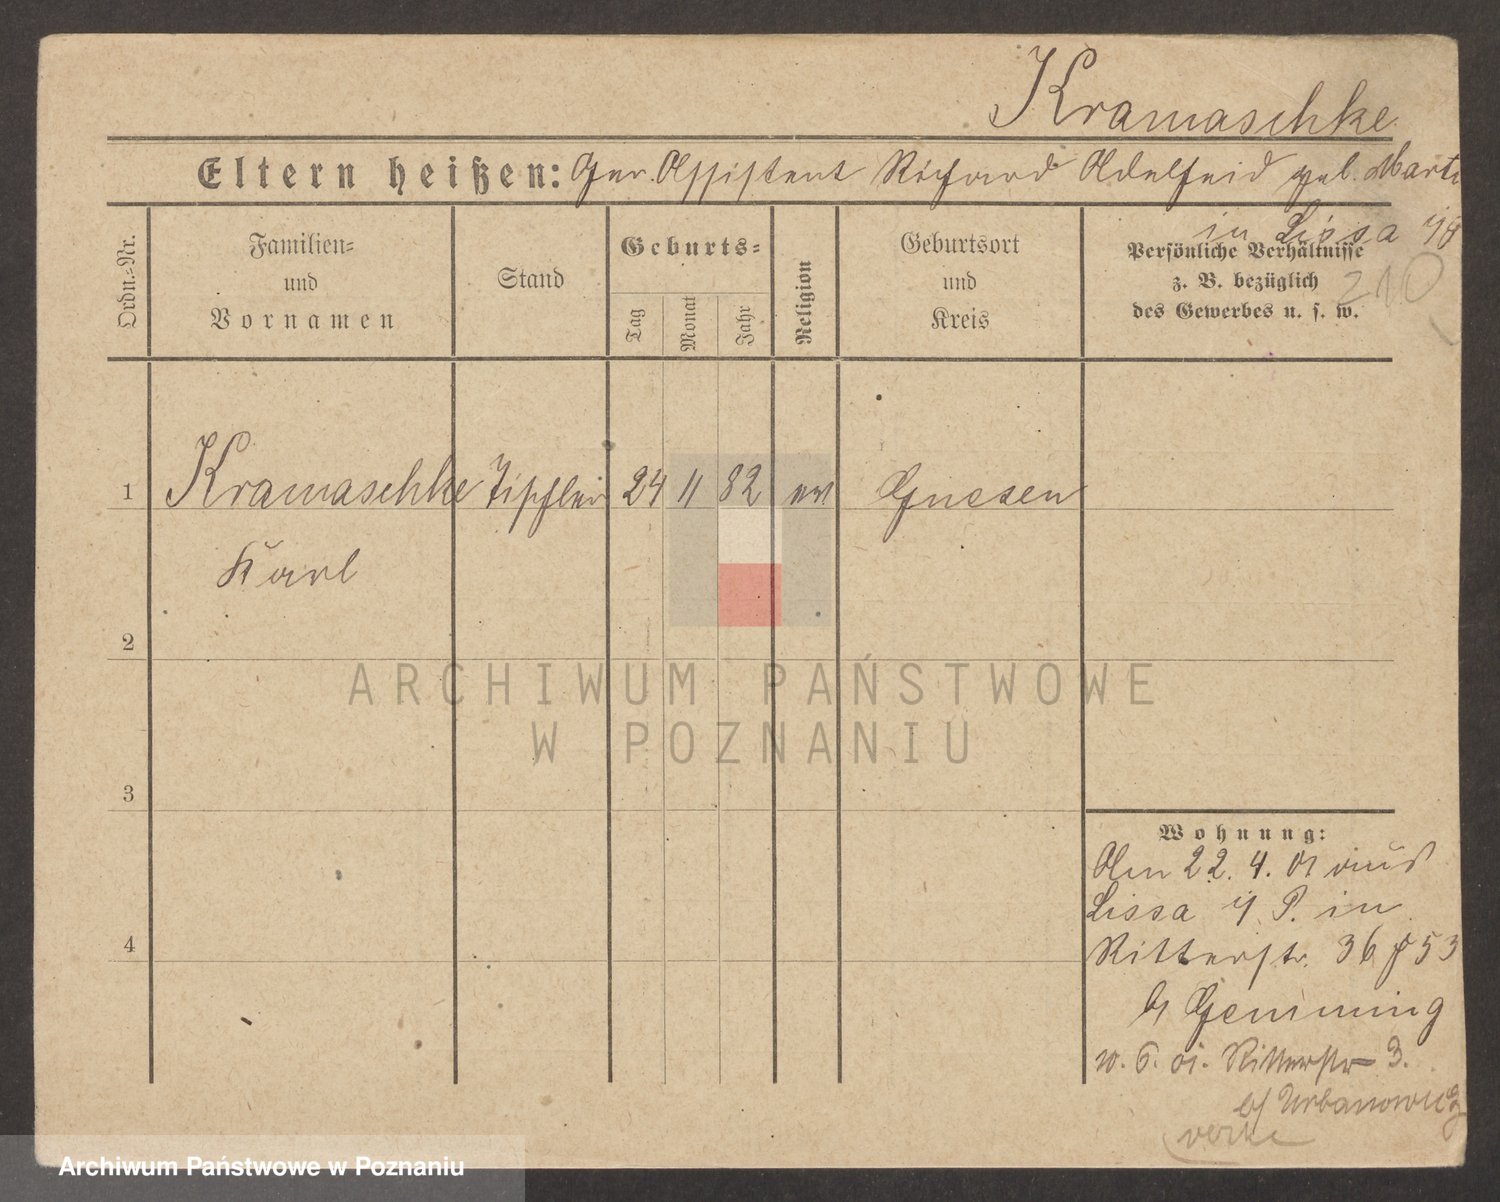 Kramaschke
Eltern heißen: Ger. Assistent Richard Adelheid geb. Marti
in Lissa
210
Ordn.-Nr.
Familien-
und
Vornamen
Stand
Geburts-
Tag
Monat
Jahr
Religion
Geburtsort
und
Kreis
Persönliche Verhältnisse
z. B. bezüglich
des Gewerbes u. s. w.
1
Kramaschke Tischler 24 11 82 ev Gnesen
Karl
2
3
4
Wohnung:
Am 22. 4. 01 aus
Lissa i/ P. in
Ritterstr. 36 53
b/ Gemming
6. 01. Ritterstr 3.
b/ Urbanowicz
ARCHIWUM PAŃSTWOWE
W POZNANIU
Archiwum Państwowe w Poznaniu